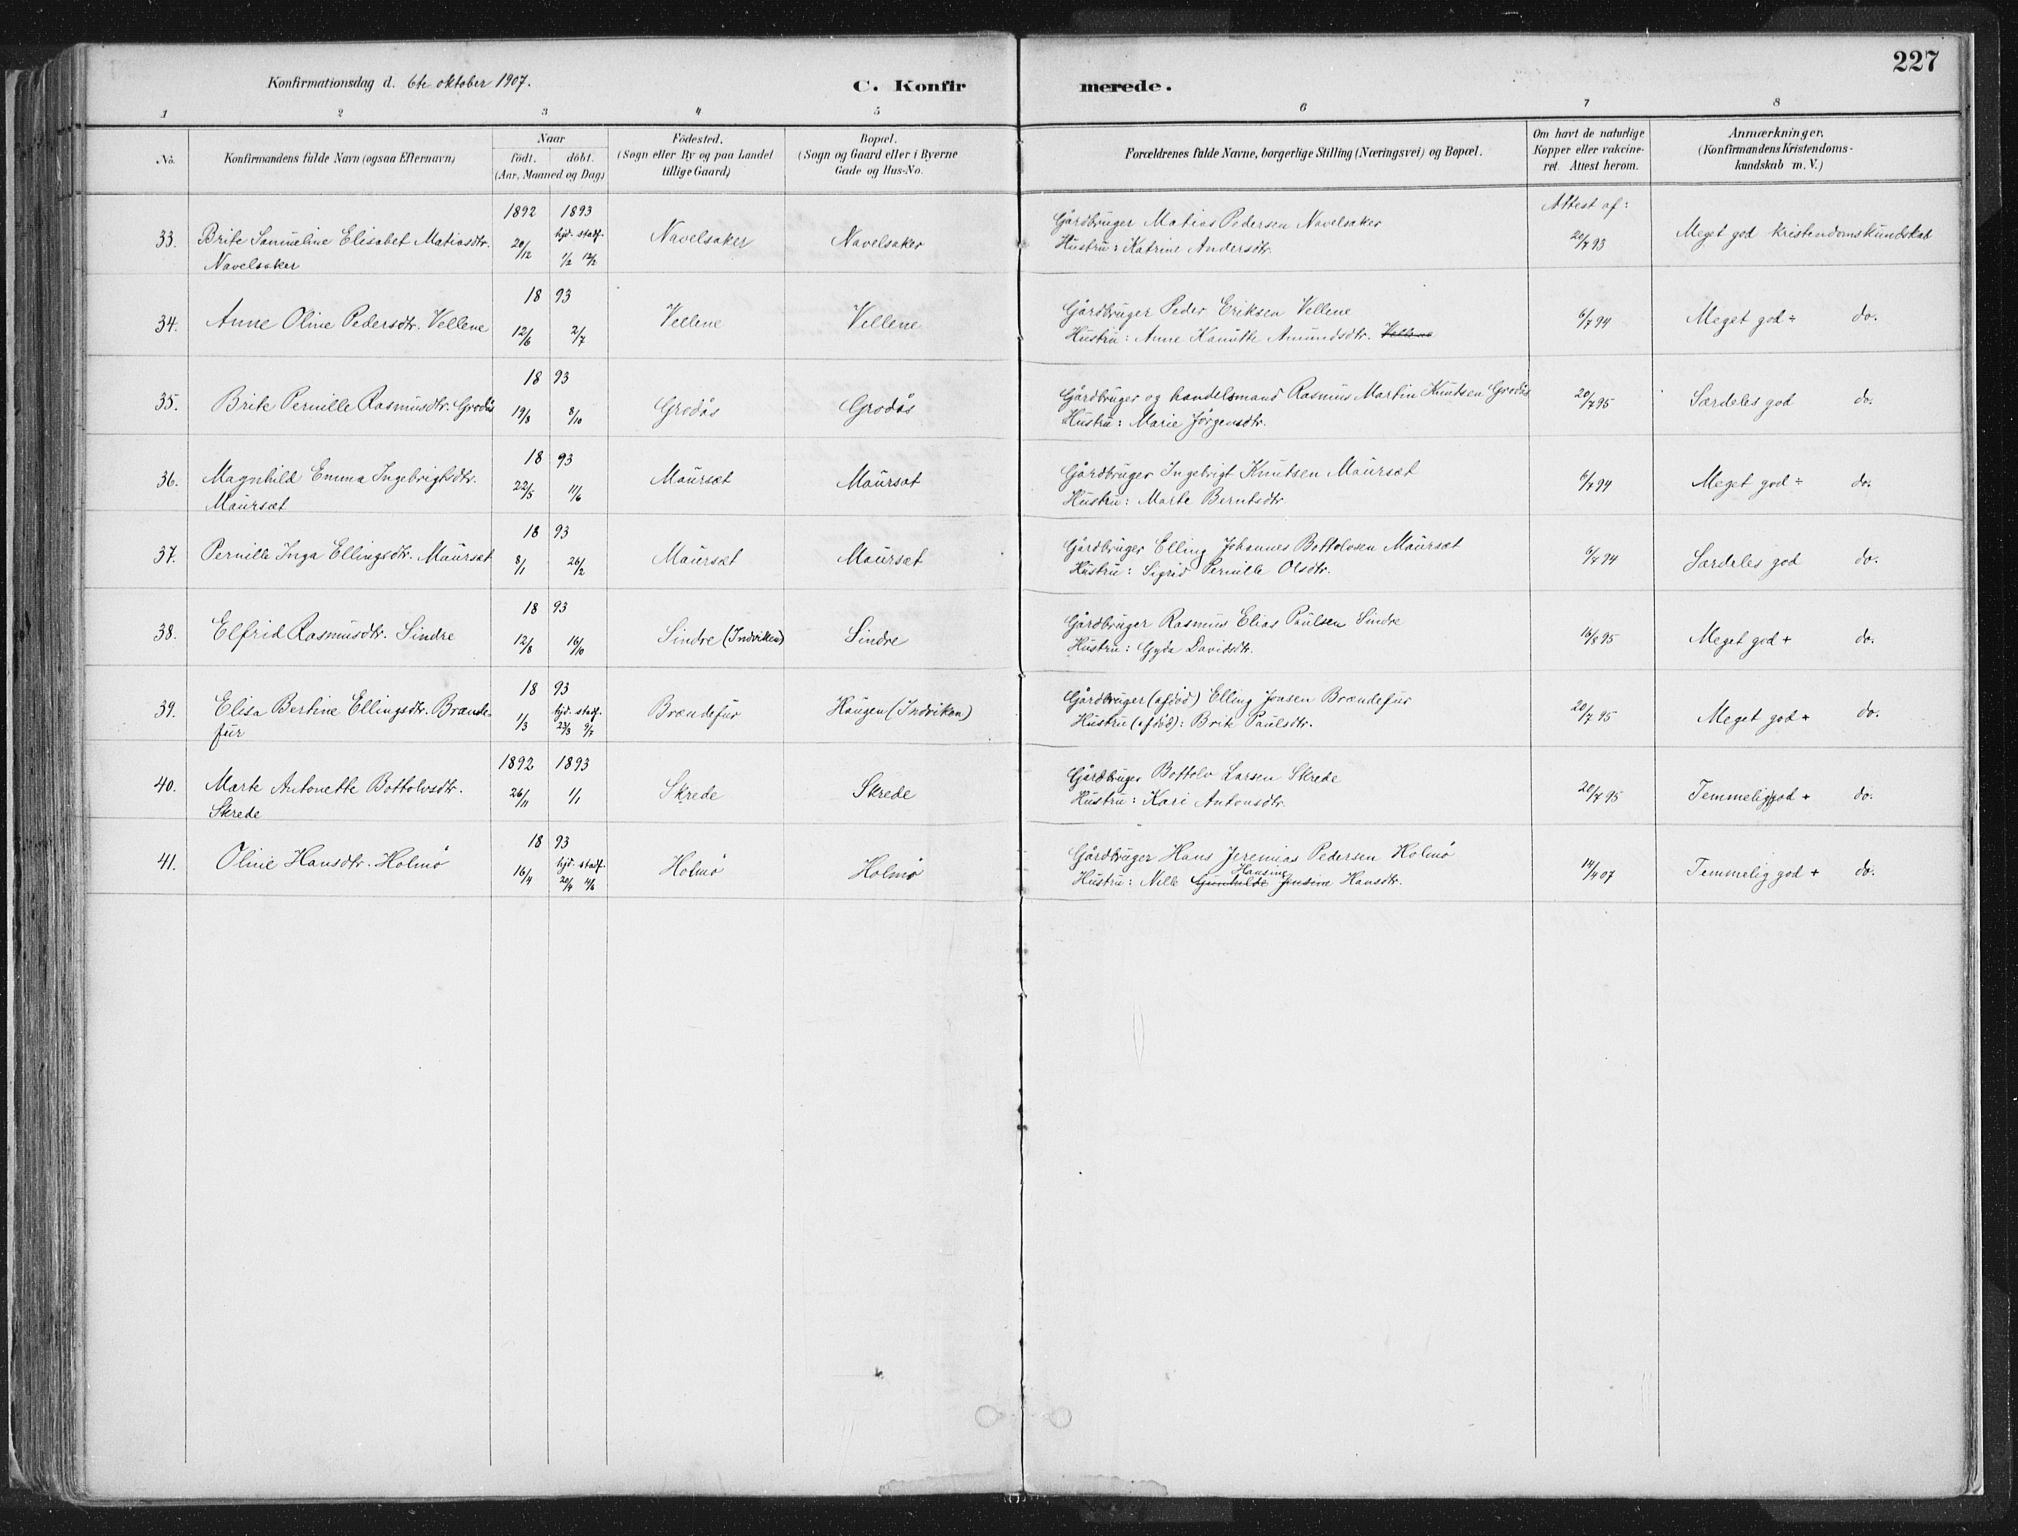 227
Konfirmationsdag d. 6te oktober 1907.
C. Konfirmerede.
1 2 3 4 5 6 7 8
No.
Konfirmandens fulde Navn (ogsaa Efternavn)
Naar
födt. döbt.
(Aar, Maaned og Dag)
Födested.
(Sogn eller By og paa Landet
tillige Gaard)
Bopæl.
(Sogn og Gaard eller i Byerne
Gade og Hus-No.
Forældrenes fulde Navne, borgerlige Stilling (Næringsvei) og Bopæl.
Om havt de naturlige
Kopper eller vakcine-
ret. Attest herom.
Anmærkninger.
(Konfirmandens Kristendoms-
kundskab m. V.)
1892 1893 Attest af:
33. Brite Samueline Elisabet Matiasdtr. 20/12 hjd. stadf. 1/2 12/2 Navelsaker Navelsaker Gårdbruger Matias Pedersen Navelsaker 21/7 93 Meget god kristendomskundskab
Navelsaker Hustru: Katrine Andersdtr.
18 93
34. Anne Oline Pedersdtr. Vellene 12/6 2/7 Vellene Vellene Gårdbruger Peder Eriksen Vellene 6/7 94 Meget god ÷ do.
Hustru: Anne Hanutte Amundsdtr. Vellene
18 93
35. Brite Pernille Rasmusdtr. Grodås 19/8 8/10 Grodås Grodås Gårdbruger og handelsmand Rasmus Martin Knutsen Grodås 20/7 95 Særdeles god do.
Hustru: Marie Jørgensdtr.
18 93
36. Magnhild Emma Ingebrigtsdtr. 22/5 11/6 Maursæt Maursæt Gårdbruger Ingebrigt Knutsen Maursæt 6/7 94 Meget god ÷ do.
Maursæt Hustru: Marte Berntsdtr.
18 93
37. Pernille Inga Ellingsdtr. Maursæt 8/1 26/2 Maursæt Maursæt Gårdbruger Elling Johannes Bottolvsen Maursæt 6/7 94 Særdeles god do.
Hustru: Sigrid Pernille Olsdtr.
18 93
38. Elfrid Rasmusdtr. Sindre 12/8 16/10 Sindre (Indviken) Sindre Gårdbruger Rasmus Elias Paulsen Sindre 16/8 95 Meget god + do.
Hustru: Gyda Davidsdtr.
18 93
39. Elisa Bertine Ellingsdtr. Brænde- 1/3 hjd. stadf. 23/3 9/7 Brændefur Haugen (Indviken) Gårdbruger (afdöd) Elling Jonsen Brændefur 20/7 95 Meget god + do.
fur Hustru (afdöd): Brite Paulsdtr.
1892 1893
40. Marte Antonette Bottolvsdtr. 26/11 1/1 Skrede Skrede Gårdbruger Bottolv Larsen Skrede 20/7 95 Temmelig god + do.
Skrede Hustru: Kari Antonsdtr.
18 93
41. Oline Hansdtr. Holmø 16/4 hjd. stadf. 20/4 4/6 Holmø Holmø Gårdbruger Hans Jeremias Pedersen Holmø 14/4 07 Temmelig god + do.
Hustru: Nille Gunhilde Jensine Hansine Hansdtr.